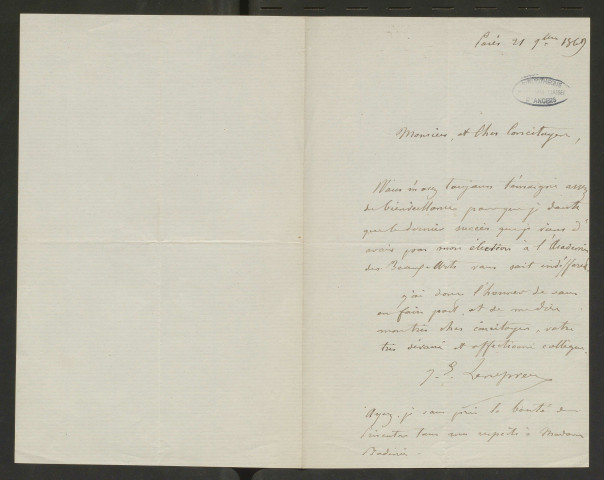 Paris 21 9bre 1869
BIBLIOTHÈQUE
D'ANGERS
Monsieur et Cher Concitoyen,
Vous m'avez toujours témoigné assez
de bienveillance pour que je doute
que le dernier succès que je viens d'
avoir par mon élection à l'Académie
des Beaux-Arts vous soit indifférent
j'ai donc l'honneur de vous
en faire part, et de me dire
mon très cher concitoyen, votre
très dévoué et affectionné collègue.
J. E. Lenepveu
Ayez, je vous prie la bonté de
présenter tous mes respects à Madame